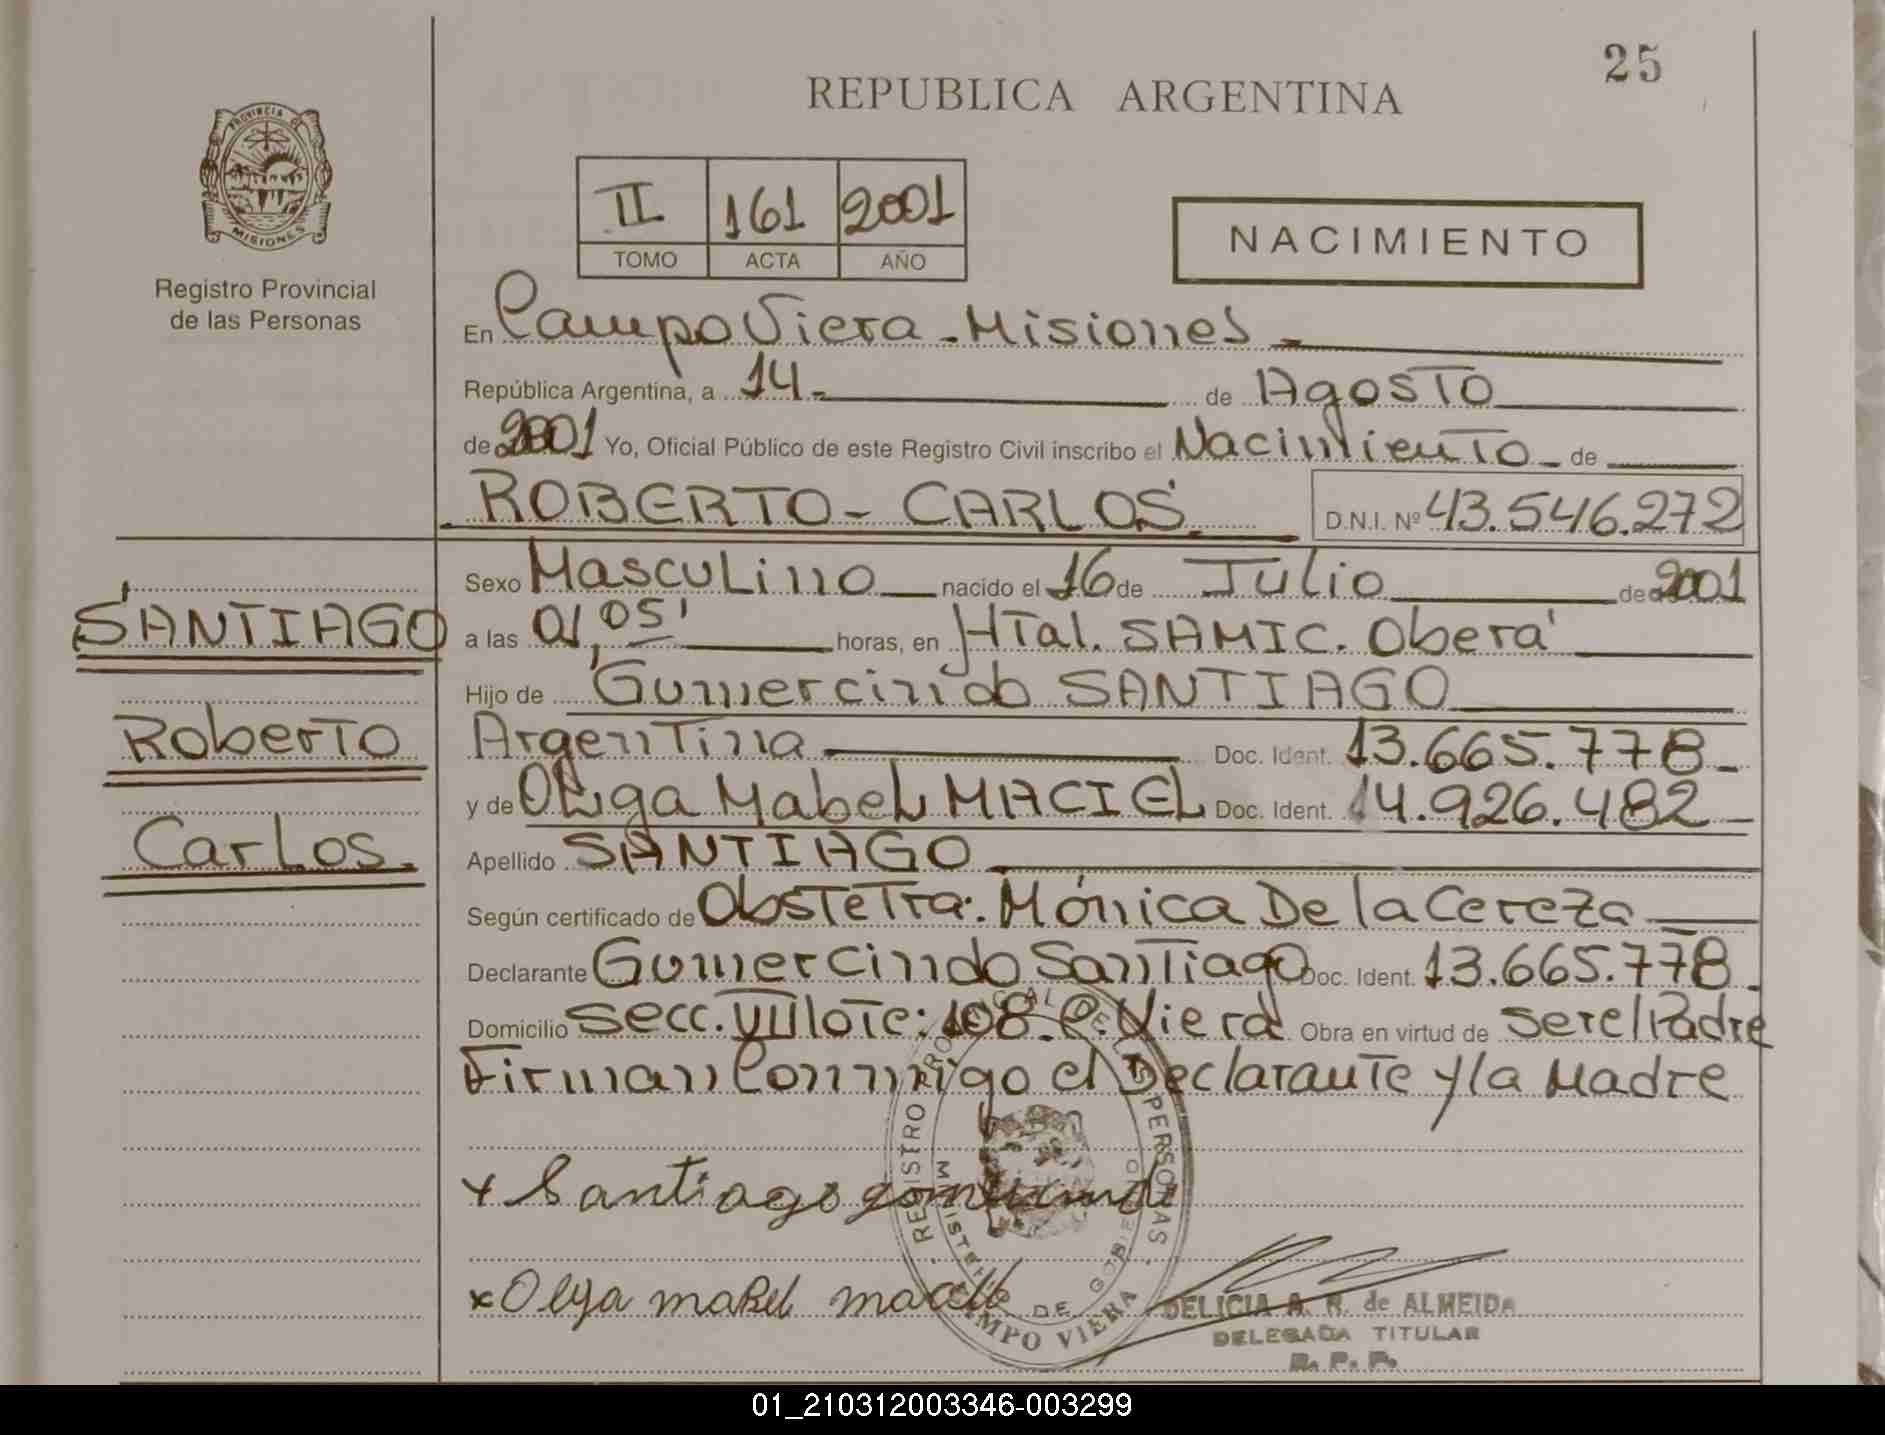 25
REPUBLICA ARGENTINA
PROVINCIA DE
MISIONES
Registro Provincial
de las Personas
II 161 2001
TOMO ACTA AÑO
NACIMIENTO
En Campo Viera - Misiones
República Argentina, a 14 de Agosto
de 2001 Yo, Oficial Público de este Registro Civil inscribo el Nacimiento de
ROBERTO - CARLOS D.N.I. Nº 43.546.272
SANTIAGO
Roberto
Carlos.
Sexo Masculino nacido el 16 de Julio de 2001
a las 01,05' horas, en HTal. SAMIC. Oberá
Hijo de Gumercindo SANTIAGO
Argentina Doc. Ident. 13.665.778
y de Olga Mabel MACIEL Doc. Ident. 14.926.482
Apellido SANTIAGO
Según certificado de Obstetra: Mónica De la Cereza
Declarante Gumercindo Santiago Doc. Ident. 13.665.778
Domicilio Secc. VIII lote: 108. C. Viera Obra en virtud de ser el Padre
Firman Conmigo el Declarante y la Madre
x Santiago
x Olga maBel
REGISTRO PROVINCIAL DE LAS PERSONAS
MINISTERIO DE GOBIERNO
CAMPO VIERA
DELICIA A. R. de ALMEIDA
DELEGADA TITULAR
R. P. P.
01_210312003346-003299